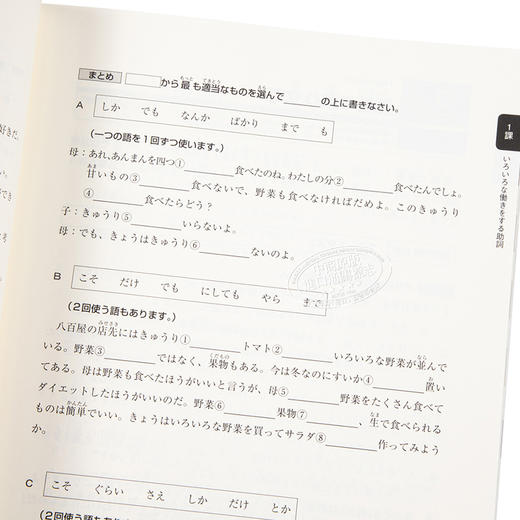 まとめ から最も適当なものを選んで______の上に書きなさい。
A しか でも なんか ばかり まで も
(一つの語を1回ずつ使います。)
母：あれ、あんまんを四つ①______食べたのね。わたしの分②______食べたんでしょ。
甘いもの③______食べないで、野菜も食べなければだめよ。このきゅうり
④______食べたらどう？
子：きゅうり⑤______いらないよ。
母：でも、きょうはきゅうり⑥______ないのよ。
B こそ だけ でも にしても やら まで
(2回使う語もあります。)
八百屋の店先にはきゅうり①______トマト②______いろいろな野菜が並んで
いる。野菜③______ではなく、果物もある。今は冬なのにすいか④______置い
てある。母は野菜も食べたほうがいいと言うが、母⑤______野菜をたくさん食べて
ダイエットしたほうがいいのだ。野菜⑥______果物⑦______、生で食べられる
ものは簡単でいい。きょうはいろいろな野菜を買ってサラダ⑧______作ってみよう
か。
C こそ ぐらい さえ しか だけ とか
1課
いろいろな働きをする助詞